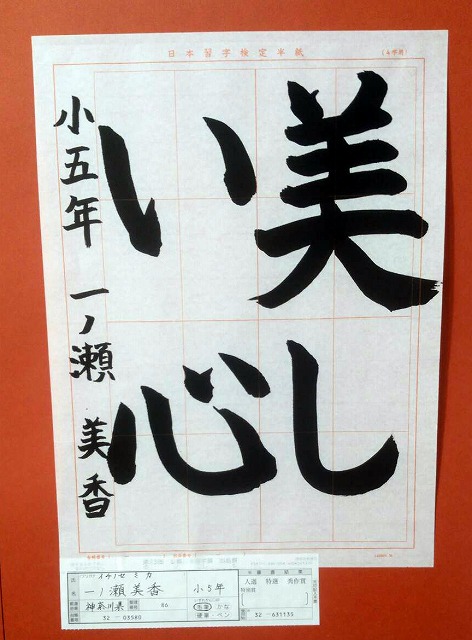 日本習字検定半紙
(4字用)
美し
い心
小五年 一ノ瀬 美香
イチノセ ミカ
氏名
一ノ瀬美香
小5年
神奈川県
86
毛筆・かな
硬筆・ペン
32 - 03580
入選 特選 秀作賞
特別賞
32 - 631135